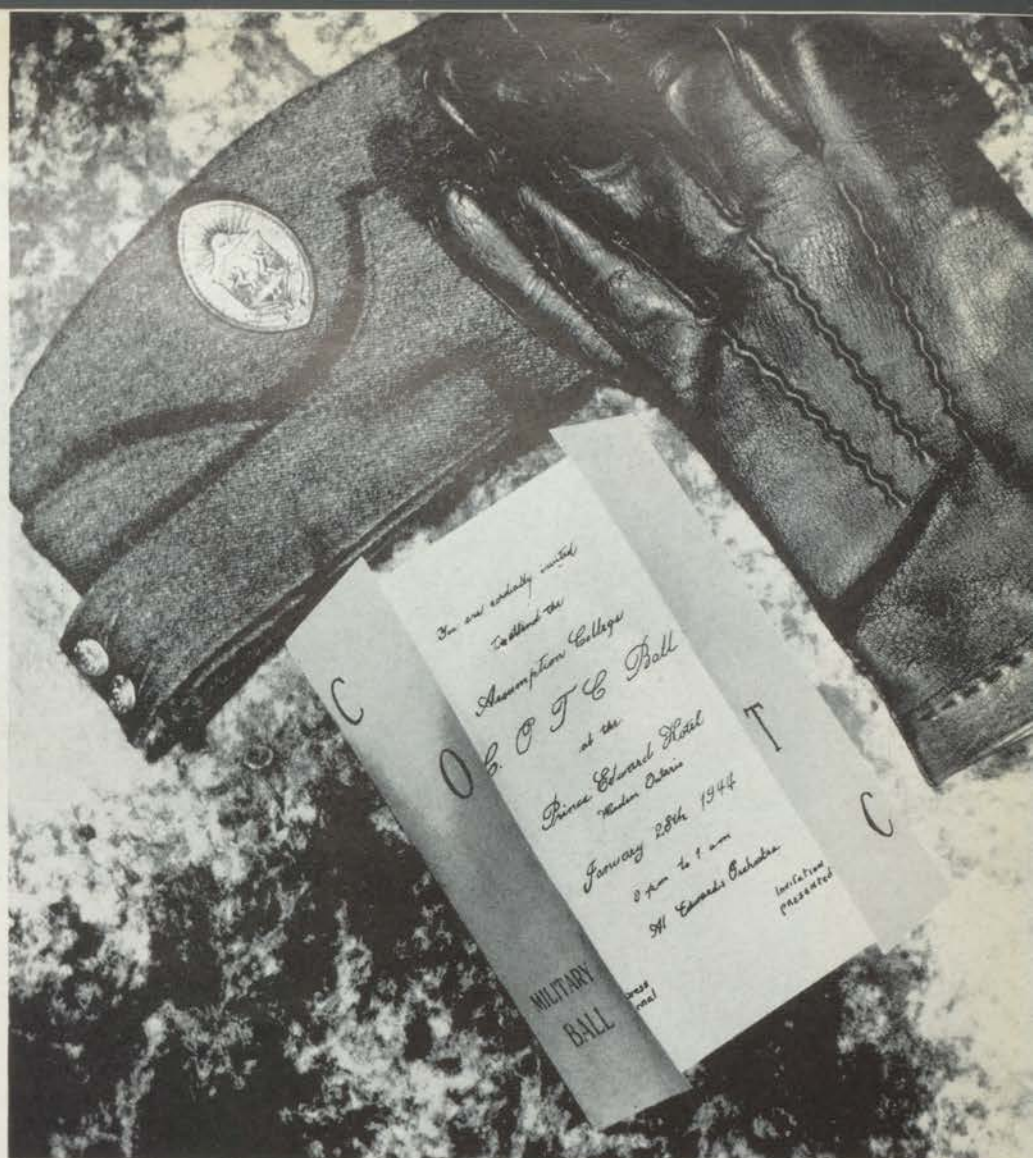 C
O
MILITARY
BALL
You are cordially invited
to attend the
Assumption College
C. O T C Ball
at the
Prince Edward Hotel
Windsor Ontario
January 28th 1944
9 pm to 1 am
Al Edwards Orchestra
Invitation
presented
T
C